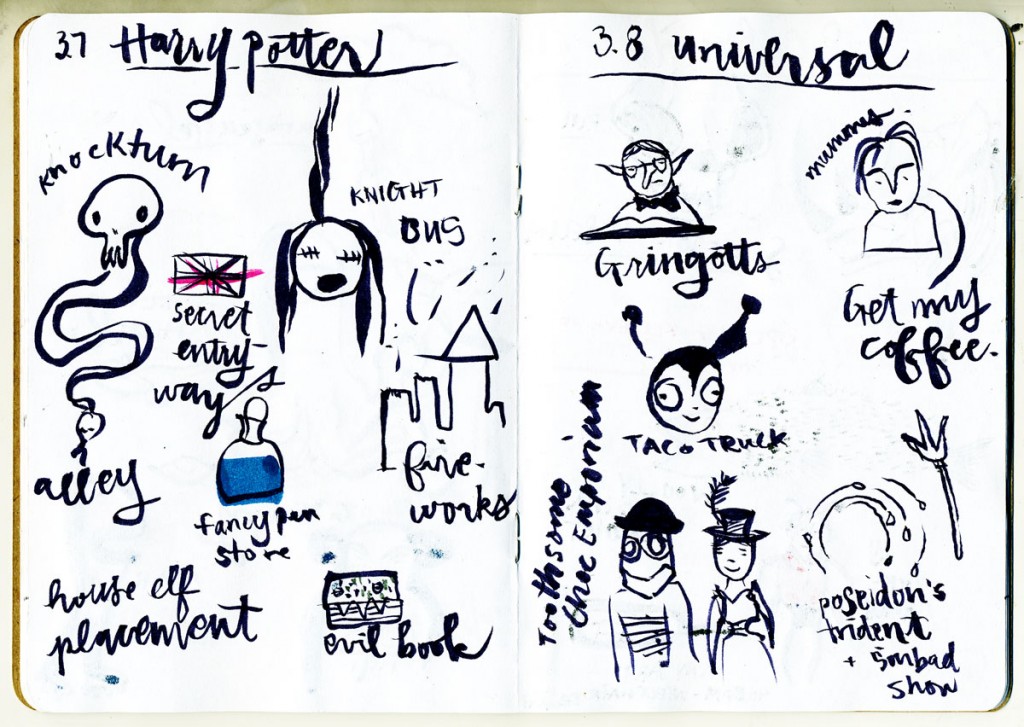 3.7 Harry Potter
Knockturn
alley
KNIGHT
BUS
secret
entry-
way/s
fancy pen
store
fire-
works
house elf
placement
evil book
3.8 universal
Gringotts
mummies.
Get my
coffee.
TACO TRUCK
Toothsome
choc Emporium
poseidon's
trident
+ sinbad
show